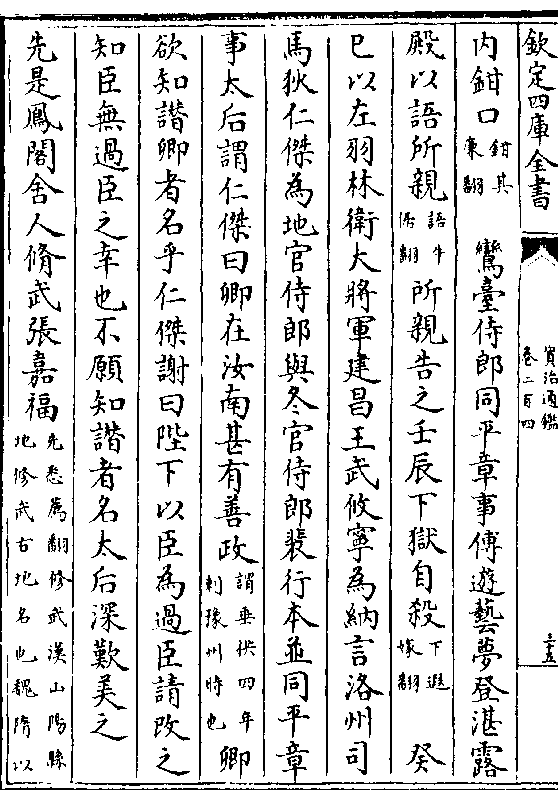 欽定四庫全書
資治通鑑
卷二百四
三五
内鉗口鉗其
廉翻鸞臺侍郎同平章事傅遊藝夢登湛露
殿以語所親語牛
倨翻所親告之壬辰下獄自殺下遐
嫁翻癸
巳以左羽林衛大將軍建昌王武攸寧為納言洛州司
馬狄仁傑為地官侍郎與冬官侍郎裴行本並同平章
事太后謂仁傑曰卿在汝南甚有善政謂垂拱四年
刺豫州時也卿
欲知譖卿者名乎仁傑謝曰陛下以臣為過臣請改之
知臣無過臣之幸也不願知譖者名太后深歎美之
先是鳳閣舍人脩武張嘉福先悉薦翻修武漢山陽縣
地修武古地名也魏隋以